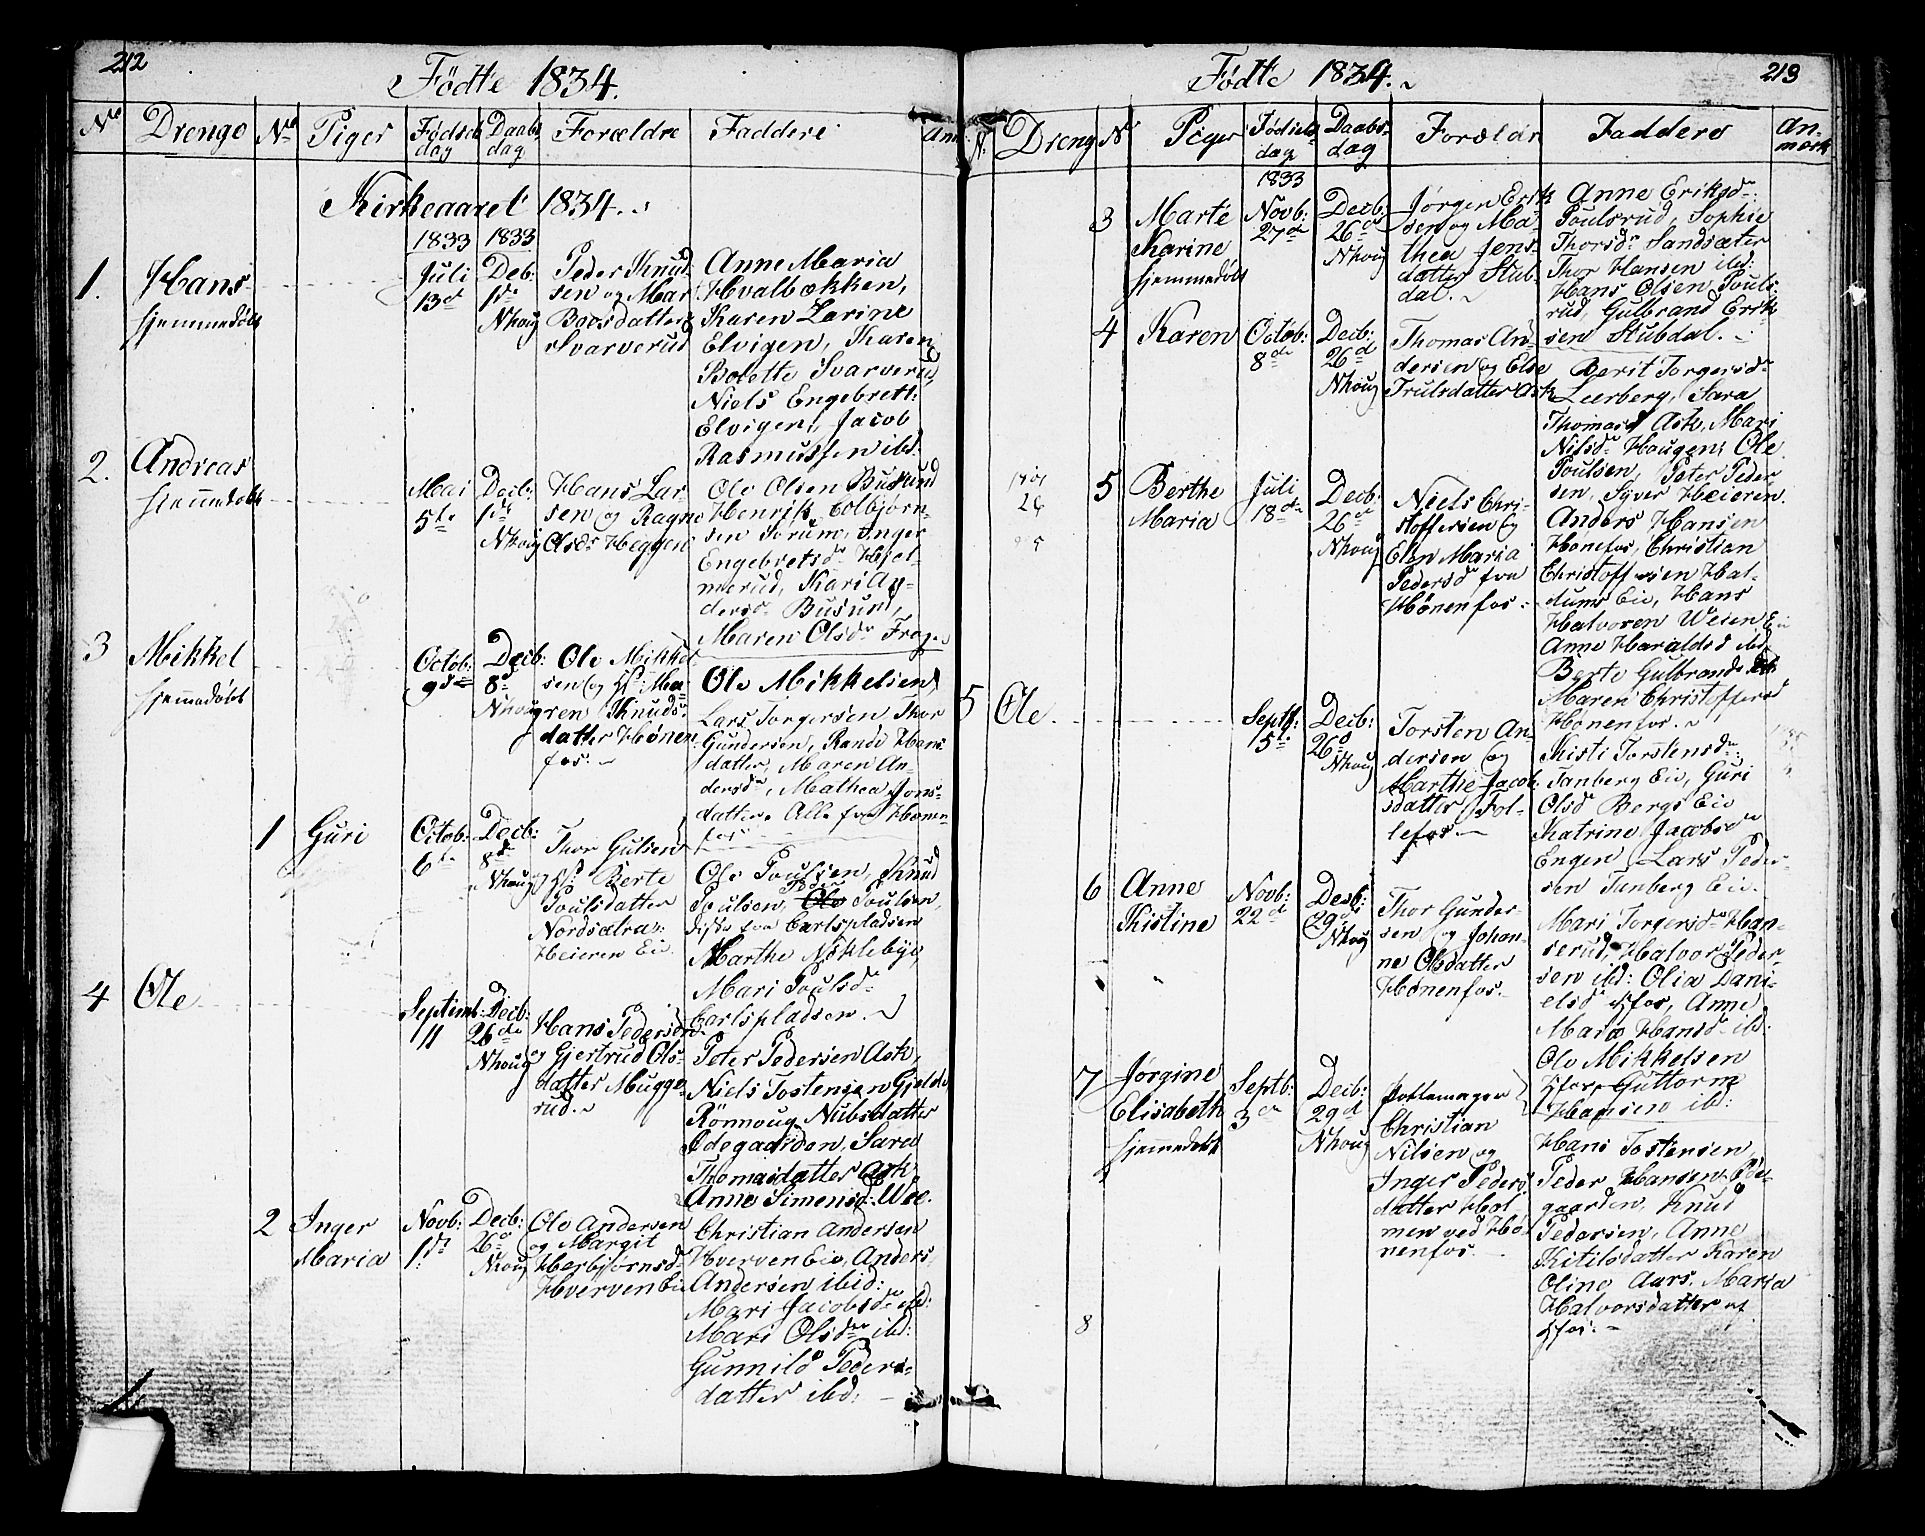 212
Födte 1834.
No Drenge No Piger Födsels dag Daabs dag Forældre Faddere Anm
Kirkeaaret 1834.
1833 1833
1. Hans hjemmedöbt
Juli 13de
Decb: 1ste Nhoug
Peder Knud
sen og Mar
Boesdatter
Svarverud
Anne Maria
Hvalbækken,
Karen Larine
Elvigen, Karen
Bolette Svarverud,
Niels Engebrett:
Elvigen, Jacob
Rasmussen ibd:
2. Andreas hjemmedöbt
Mai 5te
Decb: 1ste Nhoug
Hans Lar-
sen og Ragne
Olsdr Heggen
Ole Olsen Busund
Henrik Colbjørn-
sen Sørum, Inger
Engebretsdr Hjel-
merud, Kari An-
dersdr Busund,
Maren Olsdr Frog
3 Mikkel hjemmedöbt
Octob: 9de
Decb: 8d Nhoug
Ole Mikkel
sen og H: Ma-
ren Knuds-
datter Hönen
fos:
Ole Mikkelsen
Lars Torgersen Thor
Gundersen, Randi Hans
datter, Maren An-
dersdr, Mathea Jons-
datter. Alle fra Hönen-
fos
1 Guri
Octob: 6te
Decb: 8d Nhoug
Thor Gulsen
H: Berte
Poulsdatter
Nordsætra:
Heieren Eie
Ole Poulsen, Knud
Poulsen, Peder Ole Poulsen,
disse fra Carlspladsen
Marthe Nöklebye
Mari Poulsdr
Carlspladsen.
4 Ole
Septemb: 11
Decb: 26de Nhoug
Hans Pedersen
og Gjertrud Ols-
datter Mugge-
rud.
Peter Pedersen Ask,
Niels Tostensen Gjelde
Rönnoug Nubsdatter
Ødegaarden, Sara
Thomasdatter Ask,
Anne Simensd: Wee.
2 Inger Maria
Novb: 1ste
Decb: 26d Nhoug
Ole Andersen
og Margit
Herbjørnsd
Hverven Eie
Christian Andersen
Hverven Eie, Anders
Andersen ibid:
Mari Jacobsdr ibd:
Mari Olsdr ibd:
Gunnild Peders-
datter ibd:
213
Födte 1834.
N. Dreng N Piger Födsels dag Daabs- dag Forældr Faddere An- mærk
1833
3 Marte Karine hjemmedöbt
Novb: 27de
Decb: 26d Nhoug
Jørgen Erik
sen og Ma-
thea Jens-
datter Stub-
dal.
Anne Eriksdr
Poulsrud, Sophie
Thorsdr Sandsæter
Thor Hansen ibd:
Hans Olsen Pouls-
rud, Gulbrand Erik
sen Stubdal.
4 Karen
Octob: 8de
Decb: 26d Nhoug
Thomas An-
dersen og Else
Trulsdatter Ask
Berit Torgersdr
Leerberg, Sara
Thomasd Ask, Mari
Nilsdr Hougen, Ole
Poulsen, Peter Peder
sen, Syver Heieren.
5 Berthe Maria
Juli 18de
Decb: 26d Nhoug
Niels Chri-
stoffersen og
Elen Maria
Pedersd fra
Hönenfos
Anders Hansen
Hönefos, Christian
Christoffersen Hal-
dums Eie, Hans
Halvorsen Weien Eie
Anne Haraldsd ibd
Berte Gulbrandsd ibd
Maren Christoffersd
Hönenfos.
5 Ole
Septb: 5te
Decb: 26d Nhoug
Torsten An-
dersen og
Marthe Jacob-
sdatter Fol-
lefos.
Kisti Torstensdr
Tanberg Eie, Guri
Olsd Bergs Eie
Katrine Jacobsdr
Engen Lars Peder-
sen Tanberg Eie.
6 Anne Kistine
Novb: 22d
Decb: 29d Nhoug
Thor Gunder-
sen og Johan-
ne Olsdatter
Hönenfos.
Mari Torgersdr Han-
serud, Halvor Peder-
sen ibd: Olia Dani-
elsdr Hfos, Anne
Maria Hansdr ibd:
Ole Mikkelsen
Hfos, Guttorm
Hansen ibd:
7 Jørgine Elisabeth hjemmedöbt
Septb: 3de
Decb: 29d Nhoug
Pottemager
Christian
Nilsen og
Inger Peders
datter Hol
men ved Hö
nenfos.
Hans Tostensen,
Peder Hansen Öde-
gaarden, Knud
Pedersen, Anne
Kitilsdatter Karen
Oline Aars, Maria
Halvorsdatter af
Hfos.
8